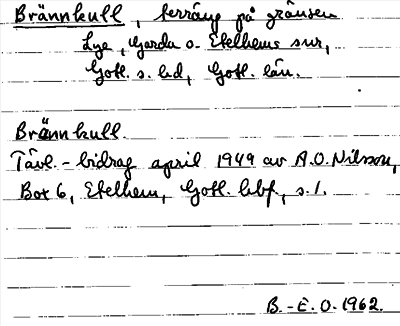 Brännkull, terräng på gränsen
Lye, Garda o. Etelhems snr,
Gotl. s. hd, Gotl. län.
Brännkull
Tävl.-bidrag april 1949 av A.O. Nilsson,
Box 6, Etelhem, Gotl. hbf, s. 1.
B.-E. O. 1962.